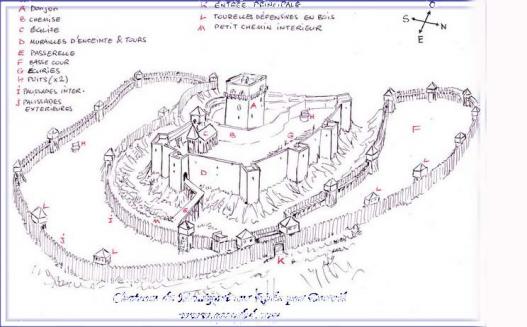 A Donjon
B CHEMISE
C ÉGLISE
D MURAILLES D'ENCEINTE & TOURS
E PASSERELLE
F BASSE COUR
G ECURIES
H PUITS (x2)
I PALISSADES INTER.
J PALISSADES EXTERIEURES
K ENTRÉE PRINCIPALE
L TOURELLES DÉFENSIVES EN BOIS
M PETIT CHEMIN INTERIEUR
O
S
N
E
A
B
B
C
D
G
H
H
F
E
M
J
J
L
L
L
L
K